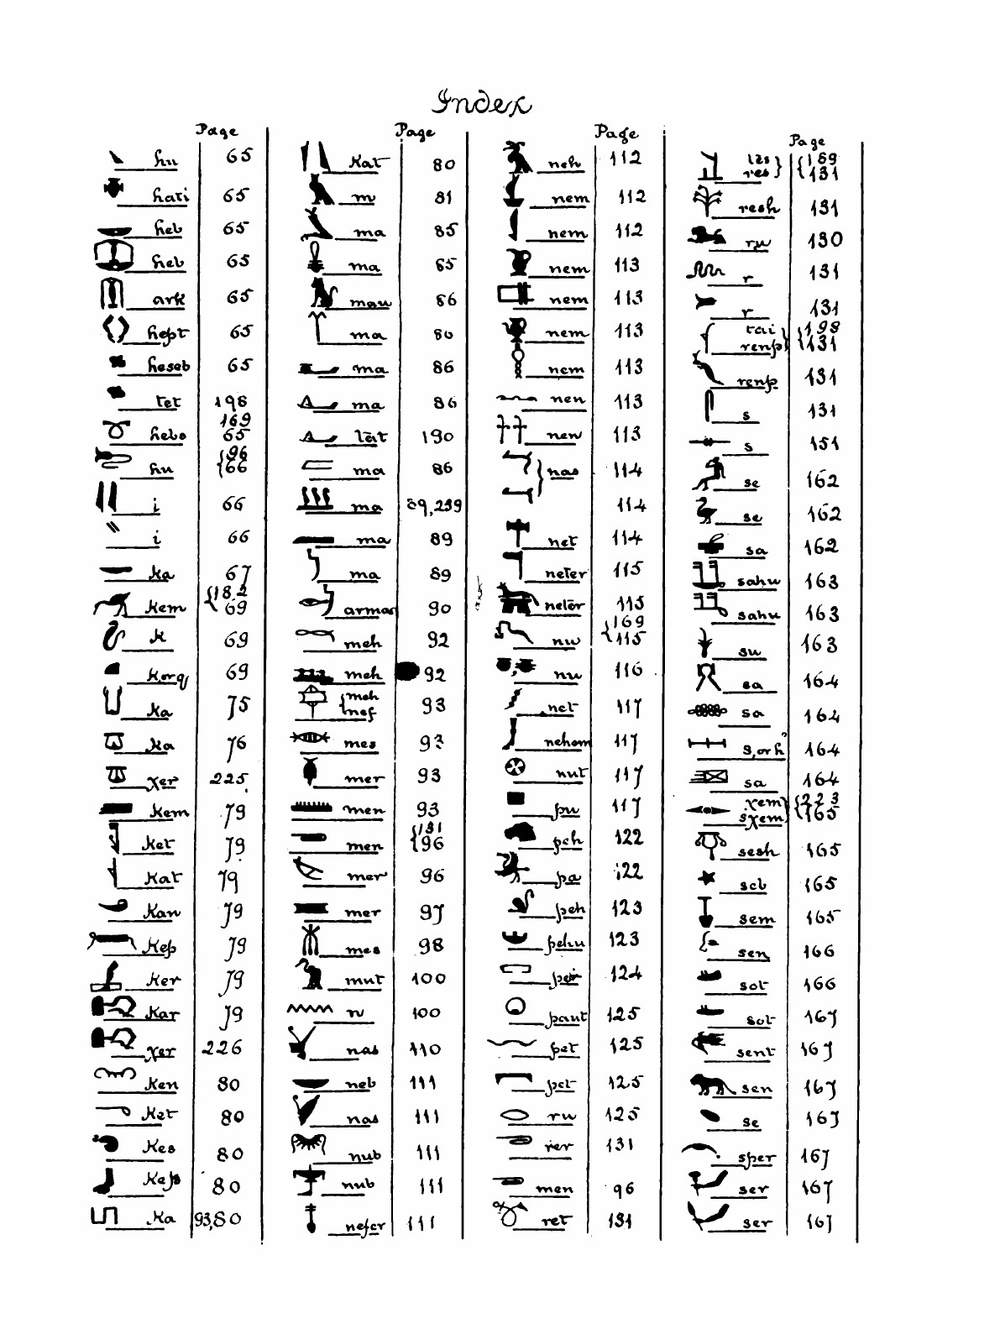 Index
Page
hu 65
hati 65
heb 65
heb 65
ark 65
hept 65
heseb 65
tet 198
hebs 169 65
hu {96 66
i 66
i 66
Ka 67
Kem {182 69
K 69
Kerq 69
Ka 75
Ka 76
χer 225
Kem 79
Ket 79
Kat 79
Kan 79
Kep 79
Ker 79
Kar 79
χer 226
Ken 80
Ket 80
Kes 80
Keps 80
Ka 93,80
Page
Kat 80
m 81
ma 85
ma 85
mau 86
ma 86
ma 86
ma 86
tāt 190
ma 86
ma 89,239
ma 89
ma 89
armas 90
meh 92
meh 92
{meh nef 93
mes 93
mer 93
men 93
men {131 96
mer 96
mer 97
mes 98
mut 100
n 100
nas 110
neb 111
nas 111
nub 111
nub 111
nefer 111
Page
neh 112
nem 112
nem 112
nem 113
nem 113
nem 113
nem 113
nen 113
nen 113
}nas 114
114
net 114
neter 115
neter 115
nu {169 115
nu 116
net 117
nehem 117
nut 117
pu 117
peh 122
pa 122
peh 123
pehu 123
per 124
paut 125
pet 125
pet 125
ru 125
rer 131
men 96
ret 131
Page
res } {131
resh 131
ru 130
r 131
r 131
tai renp} {198 131
renp 131
s 131
s 151
se 162
se 162
sa 162
sahu 163
sahu 163
su 163
sa 164
sa 164
s, or h 164
sa 164
χem sχem} {223 165
sesh 165
seb 165
sem 165
sen 166
sot 166
sot 167
sent 167
sen 167
se 167
sper 167
ser 167
ser 167